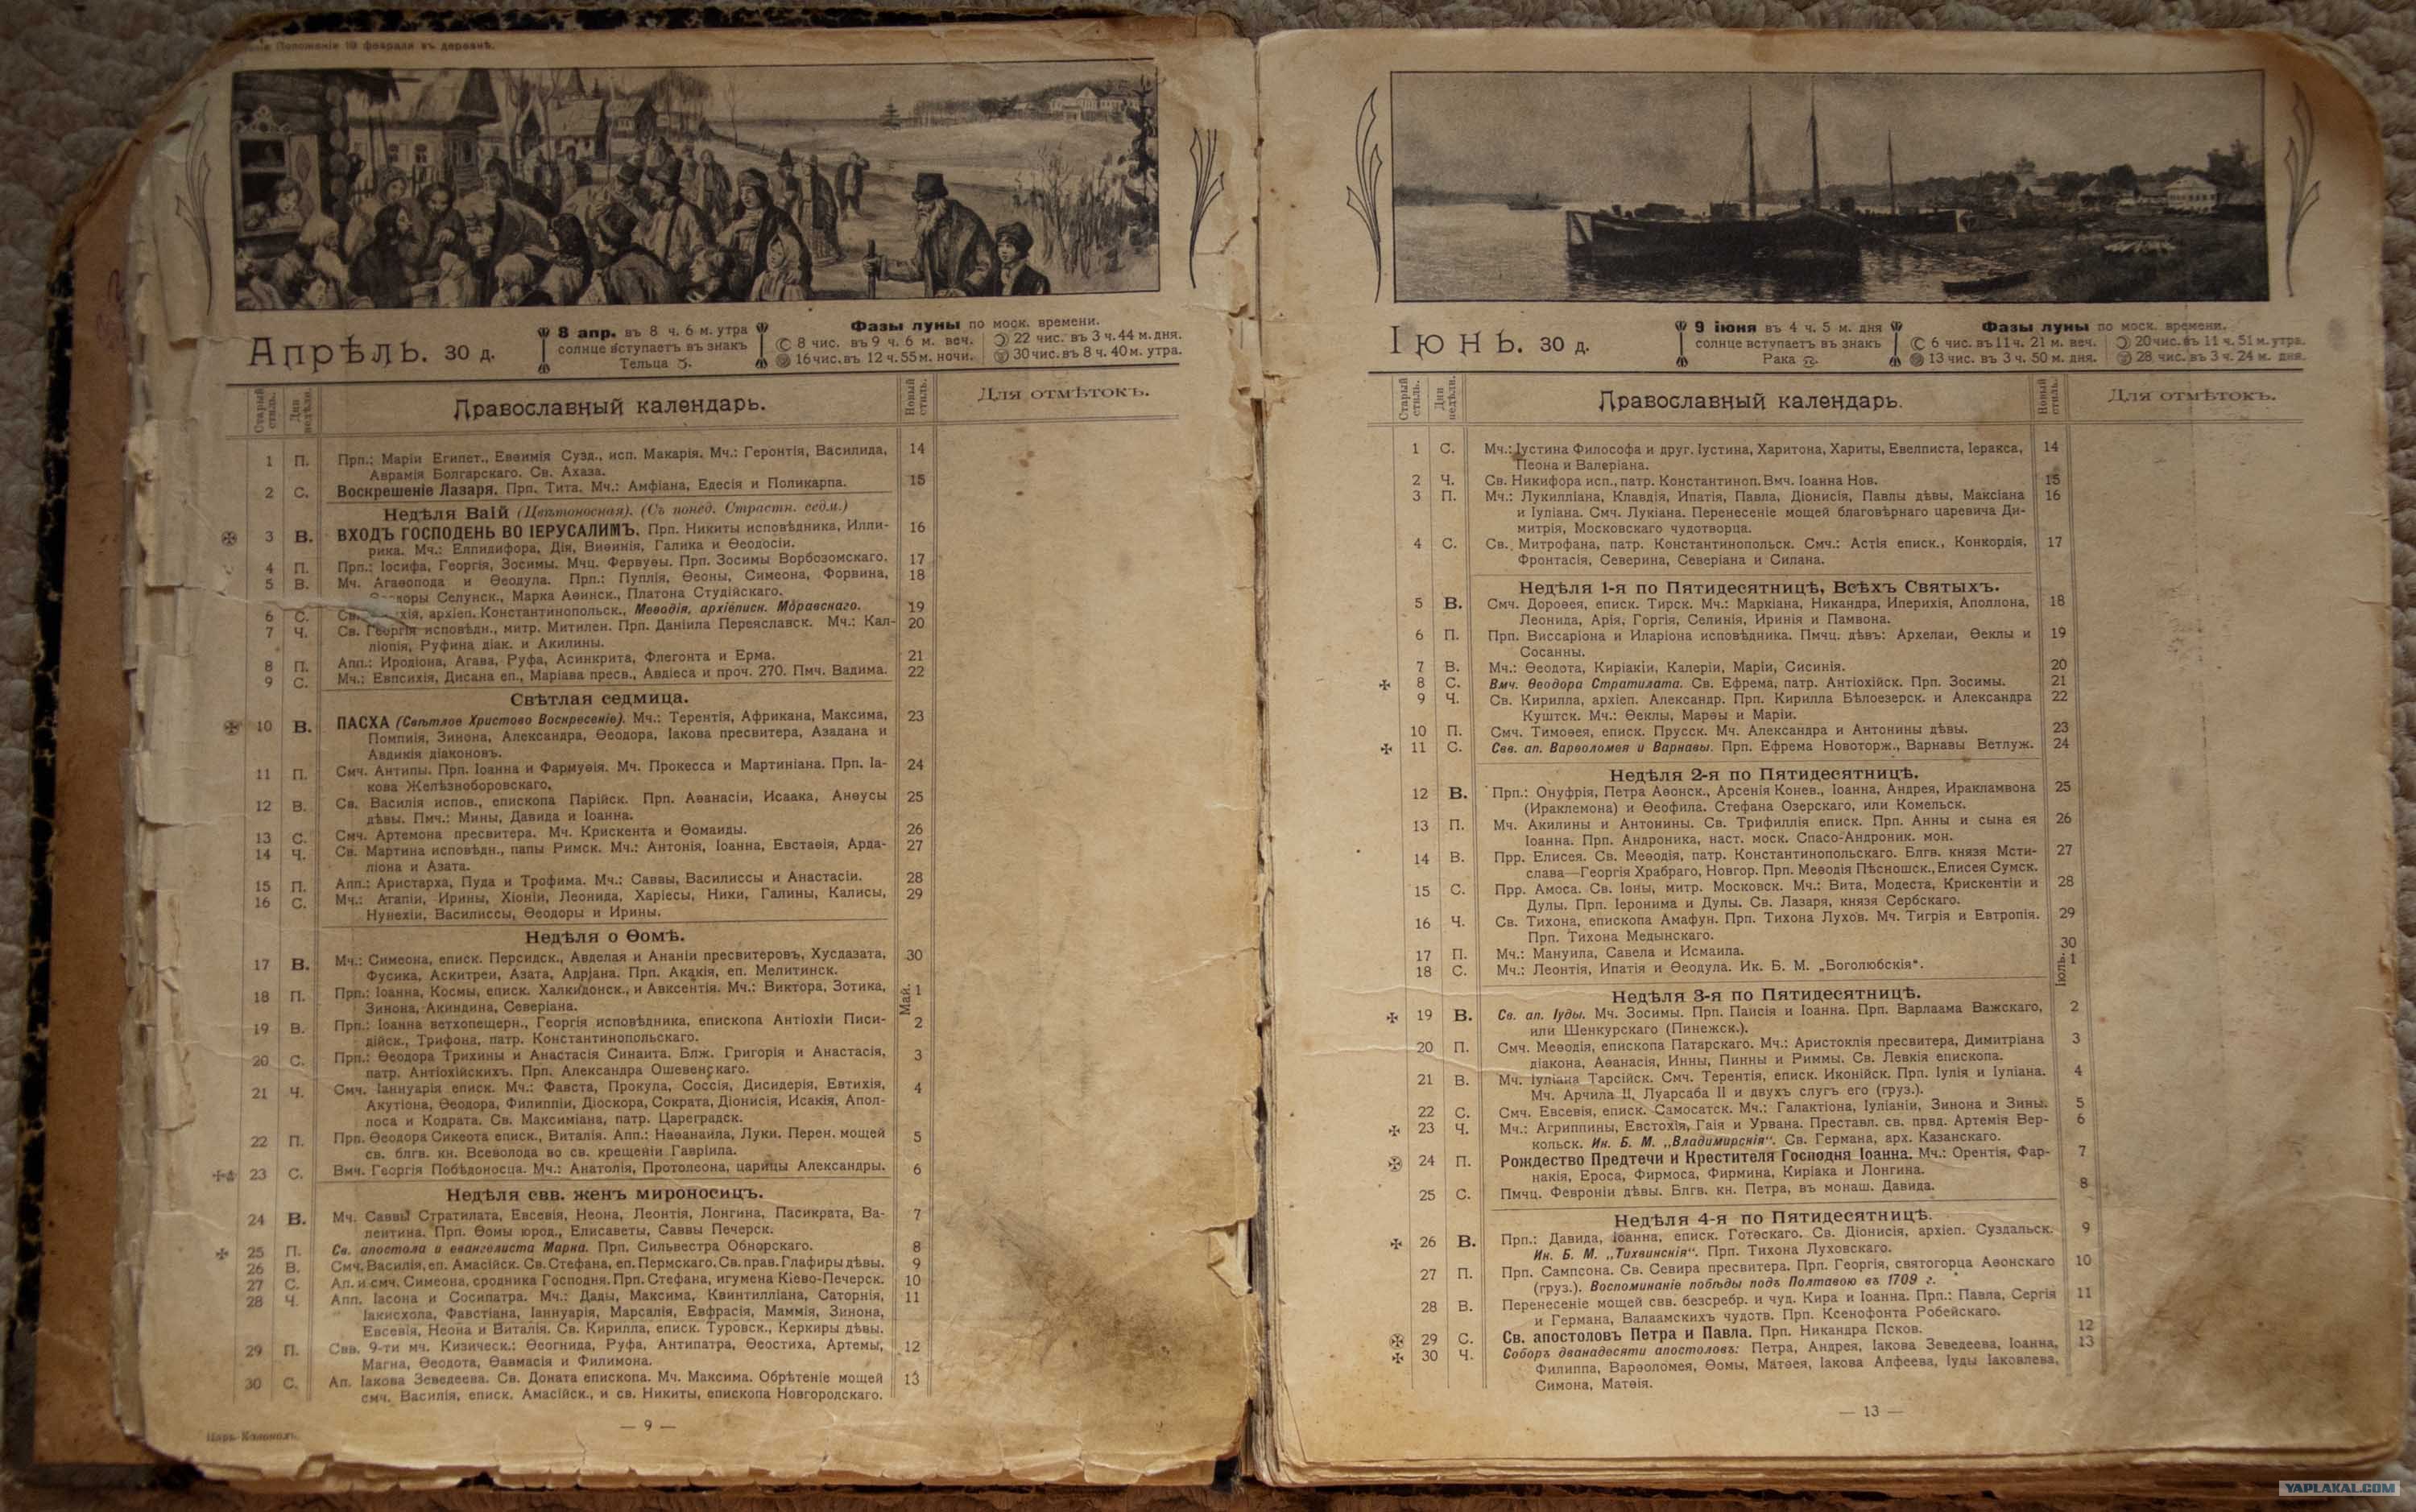 Положеніе 19 февраля въ деревнѣ.
Апрѣль. 30 д.
8 апр. въ 8 ч. 6 м. утра
солнце вступаетъ въ знакъ
Тельца ♉.
Фазы луны по моск. времени.
8 чис. въ 9 ч. 6 м. веч.
22 чис. въ 3 ч. 44 м. дня.
16 чис. въ 12 ч. 55 м. ночи.
30 чис. въ 8 ч. 40 м. утра.
Старый стиль.
Дни недѣли.
Православный календарь.
Новый стиль.
Для отмѣтокъ.
1 П. Прп.: Маріи Египет., Евѳимія Сузд., исп. Макарія. Мч.: Геронтія, Василида, 14
Аврамія Болгарскаго. Св. Ахаза.
2 С. Воскрешеніе Лазаря. Прп. Тита. Мч.: Амфіана, Едесія и Поликарпа. 15
Недѣля Ваій (Цвѣтоносная). (Съ понед. Страстн. седм.)
3 В. ВХОДЪ ГОСПОДЕНЬ ВО ІЕРУСАЛИМЪ. Прп. Никиты исповѣдника, Илли- 16
рика. Мч.: Елпидифора, Дія, Виѳинія, Галика и Ѳеодосіи.
4 П. Прп.: Іосифа, Георгія, Зосимы. Мчц. Фервуѳы. Прп. Зосимы Ворбозомскаго. 17
5 В. Мч. Агаѳопода и Ѳеодула. Прп.: Пуплія, Ѳеоны, Симеона, Форвина, 18
Селунск., Марка Аѳинск., Платона Студійскаго.
6 С. Св. архіеп. Константинопольск., Меѳодія, архіеписк. Моравскаго. 19
7 Ч. Св. Георгія исповѣдн., митр. Митилен. Прп. Даніила Переяславск. Мч.: Кал- 20
ліопія, Руфина діак. и Акилины.
8 П. Апп.: Иродіона, Агава, Руфа, Асинкрита, Флегонта и Ерма. 21
9 С. Мч.: Евпсихія, Дисана еп., Маріава пресв., Авдіеса и проч. 270. Пмч. Вадима. 22
Свѣтлая седмица.
10 В. ПАСХА (Свѣтлое Христово Воскресеніе). Мч.: Терентія, Африкана, Максима, 23
Помпиія, Зинона, Александра, Ѳеодора, Іакова пресвитера, Азадана и
Авдикія діаконовъ.
11 П. Смч. Антипы. Прп. Іоанна и Фармуѳія. Мч. Прокесса и Мартиніана. Прп. Іа- 24
кова Желѣзноборовскаго.
12 В. Св. Василія испов., епископа Парійск. Прп. Аѳанасіи, Исаака, Анѳусы 25
дѣвы. Пмч.: Мины, Давида и Іоанна.
13 С. Смч. Артемона пресвитера. Мч. Крискента и Ѳомаиды. 26
14 Ч. Св. Мартина исповѣдн., папы Римск. Мч.: Антонія, Іоанна, Евстаѳія, Арда- 27
ліона и Азата.
15 П. Апп.: Аристарха, Пуда и Трофима. Мч.: Саввы, Василиссы и Анастасіи. 28
16 С. Мч.: Агапіи, Ирины, Хіоніи, Леонида, Харіесы, Ники, Галины, Калисы, 29
Нунехіи, Василиссы, Ѳеодоры и Ирины.
Недѣля о Ѳомѣ.
17 В. Мч.: Симеона, еписк. Персидск., Авделая и Ананіи пресвитеровъ, Хусдазата, 30
Фусика, Аскитреи, Азата, Адріана. Прп. Акакія, еп. Мелитинск.
Май.
18 П. Прп.: Іоанна, Космы, еписк. Халкидонск., и Авксентія. Мч.: Виктора, Зотика, 1
Зинона, Акиндина, Северіана.
19 В. Прп.: Іоанна ветхопещерн., Георгія исповѣдника, епископа Антіохіи Писи- 2
дійск., Трифона, патр. Константинопольскаго.
20 С. Прп.: Ѳеодора Трихины и Анастасія Синаита. Блж. Григорія и Анастасія, 3
патр. Антіохійскихъ. Прп. Александра Ошевенскаго.
21 Ч. Смч. Іаннуарія еписк. Мч.: Фавста, Прокула, Соссія, Дисидерія, Евтихія, 4
Акутіона, Ѳеодора, Филиппіи, Діоскора, Сократа, Діонисія, Исакія, Апол-
лоса и Кодрата. Св. Максиміана, патр. Цареградск.
22 П. Прп. Ѳеодора Сикеота еписк., Виталія. Апп.: Наѳанаила, Луки. Перен. мощей 5
св. блгв. кн. Всеволода во св. крещеніи Гавріила.
23 С. Вмч. Георгія Побѣдоносца. Мч.: Анатолія, Протолеона, царицы Александры. 6
Недѣля свв. женъ мироносицъ.
24 В. Мч. Саввы Стратилата, Евсевія, Неона, Леонтія, Лонгина, Пасикрата, Ва- 7
лентина. Прп. Ѳомы юрод., Елисаветы, Саввы Печерск.
25 П. Св. апостола и евангелиста Марка. Прп. Сильвестра Обнорскаго. 8
26 В. Смч. Василія, еп. Амасійск. Св. Стефана, еп. Пермскаго. Св. прав. Глафиры дѣвы. 9
27 С. Ап. и смч. Симеона, сродника Господня. Прп. Стефана, игумена Кіево-Печерск. 10
28 Ч. Апп. Іасона и Сосипатра. Мч.: Дады, Максима, Квинтилліана, Саторнія, 11
Іакисхола, Фавстіана, Іаннуарія, Марсалія, Евфрасія, Маммія, Зинона,
Евсевія, Неона и Виталія. Св. Кирилла, еписк. Туровск., Керкиры дѣвы.
29 П. Свв. 9-ти мч. Кизическ.: Ѳеогнида, Руфа, Антипатра, Ѳеостиха, Артемы, 12
Магна, Ѳеодота, Ѳавмасія и Филимона.
30 С. Ап. Іакова Зеведеева. Св. Доната епископа. Мч. Максима. Обрѣтеніе мощей 13
смч. Василія, еписк. Амасійск., и св. Никиты, епископа Новгородскаго.
— 9 —
Царь-Колоколъ.
Іюнь. 30 д.
9 іюня въ 4 ч. 5 м. дня
солнце вступаетъ въ знакъ
Рака ♋.
Фазы луны по моск. времени.
6 чис. въ 11 ч. 21 м. веч.
20 чис. въ 11 ч. 51 м. утра.
13 чис. въ 3 ч. 50 м. дня.
28 чис. въ 3 ч. 24 м. дня.
Старый стиль.
Дни недѣли.
Православный календарь.
Новый стиль.
Для отмѣтокъ.
1 С. Мч.: Іустина Философа и друг. Іустина, Харитона, Хариты, Евелписта, Іеракса, 14
Пеона и Валеріана.
2 Ч. Св. Никифора исп., патр. Константиноп. Вмч. Іоанна Нов. 15
3 П. Мч.: Лукилліана, Клавдія, Ипатія, Павла, Діонисія, Павлы дѣвы, Максіана 16
и Іуліана. Смч. Лукіана. Перенесеніе мощей благовѣрнаго царевича Ди-
митрія, Московскаго чудотворца.
4 С. Св. Митрофана, патр. Константинопольск. Смч.: Астія еписк., Конкордія, 17
Фронтасія, Северина, Северіана и Силана.
Недѣля 1-я по Пятидесятницѣ, Всѣхъ Святыхъ.
5 В. Смч. Дороѳея, еписк. Тирск. Мч.: Маркіана, Никандра, Иперихія, Аполлона, 18
Леонида, Арія, Горгія, Селинія, Иринія и Памвона.
6 П. Прп. Виссаріона и Иларіона исповѣдника. Пмчц. дѣвъ: Архелаи, Ѳеклы и 19
Сосанны.
7 В. Мч.: Ѳеодота, Киріакіи, Калеріи, Маріи, Сисинія. 20
8 С. Вмч. Ѳеодора Стратилата. Св. Ефрема, патр. Антіохійск. Прп. Зосимы. 21
9 Ч. Св. Кирилла, архіеп. Александр. Прп. Кирилла Бѣлоезерск. и Александра 22
Куштск. Мч.: Ѳеклы, Марѳы и Маріи.
10 П. Смч. Тимоѳея, еписк. Прусск. Мч. Александра и Антонины дѣвы. 23
11 С. Свв. ап. Варѳоломея и Варнавы. Прп. Ефрема Новоторж., Варнавы Ветлуж. 24
Недѣля 2-я по Пятидесятницѣ.
12 В. Прп.: Онуфрія, Петра Аѳонск., Арсенія Конев., Іоанна, Андрея, Иракламвона 25
(Ираклемона) и Ѳеофила. Стефана Озерскаго, или Комельск.
13 П. Мч. Акилины и Антонины. Св. Трифиллія еписк. Прп. Анны и сына ея 26
Іоанна. Прп. Андроника, наст. моск. Спасо-Андроник. мон.
14 В. Прр. Елисея. Св. Меѳодія, патр. Константинопольскаго. Блгв. князя Мсти- 27
слава—Георгія Храбраго, Новгор. Прп. Меѳодія Пѣсношск., Елисея Сумск.
15 С. Прр. Амоса. Св. Іоны, митр. Московск. Мч.: Вита, Модеста, Крискентіи и 28
Дулы. Прп. Іеронима и Дулы. Св. Лазаря, князя Сербскаго.
16 Ч. Св. Тихона, епископа Амафун. Прп. Тихона Лухов. Мч. Тигрія и Евтропія. 29
Прп. Тихона Медынскаго.
17 П. Мч.: Мануила, Савела и Исмаила. 30
Іюль.
18 С. Мч.: Леонтія, Ипатія и Ѳеодула. Ик. Б. М. „Боголюбскія“. 1
Недѣля 3-я по Пятидесятницѣ.
19 В. Св. ап. Іуды. Мч. Зосимы. Прп. Паисія и Іоанна. Прп. Варлаама Важскаго, 2
или Шенкурскаго (Пинежск.).
20 П. Смч. Меѳодія, епископа Патарскаго. Мч.: Аристоклія пресвитера, Димитріана 3
діакона, Аѳанасія, Инны, Пинны и Риммы. Св. Левкія епископа.
21 В. Мч. Іуліана Тарсійск. Смч. Терентія, еписк. Иконійск. Прп. Іулія и Іуліана. 4
Мч. Арчила II, Луарсаба II и двухъ слугъ его (груз.).
22 С. Смч. Евсевія, еписк. Самосатск. Мч.: Галактіона, Іуліаніи, Зинона и Зины. 5
23 Ч. Мч.: Агриппины, Евстохія, Гаія и Урвана. Преставл. св. првд. Артемія Вер- 6
кольск. Ик. Б. М. „Владимирскія“. Св. Германа, арх. Казанскаго.
24 П. Рождество Предтечи и Крестителя Господня Іоанна. Мч.: Орентія, Фар- 7
накія, Ероса, Фирмоса, Фирмина, Киріака и Лонгина.
25 С. Пмчц. Февроніи дѣвы. Блгв. кн. Петра, въ монаш. Давида. 8
Недѣля 4-я по Пятидесятницѣ.
26 В. Прп.: Давида, Іоанна, еписк. Готѳскаго. Св. Діонисія, архіеп. Суздальск. 9
Ик. Б. М. „Тихвинскія“. Прп. Тихона Луховскаго.
27 П. Прп. Сампсона. Св. Севира пресвитера. Прп. Георгія, святогорца Аѳонскаго 10
(груз.). Воспоминаніе побѣды подъ Полтавою въ 1709 г.
28 В. Перенесеніе мощей свв. безсребр. и чуд. Кира и Іоанна. Прп.: Павла, Сергія 11
и Германа, Валаамскихъ чудотв. Прп. Ксенофонта Робейскаго.
29 С. Св. апостоловъ Петра и Павла. Прп. Никандра Псков. 12
30 Ч. Соборъ дванадесяти апостоловъ: Петра, Андрея, Іакова Зеведеева, Іоанна, 13
Филиппа, Варѳоломея, Ѳомы, Матѳея, Іакова Алфеева, Іуды Іаковлева,
Симона, Матѳія.
— 13 —
YAPLAKAL.COM